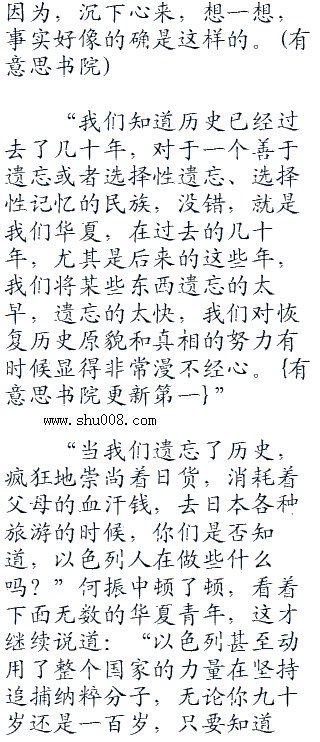 因为，沉下心来，想一想，
事实好像的确是这样的。(有
意思书院)
“我们知道历史已经过
去了几十年，对于一个善于
遗忘或者选择性遗忘、选择
性记忆的民族，没错，就是
我们华夏，在过去的几十
年，尤其是后来的这些年，
我们将某些东西遗忘的太
早，遗忘的太快，我们对恢
复历史原貌和真相的努力有
时候显得非常漫不经心。{有
意思书院更新第一}”
www.shu008.com
“当我们遗忘了历史，
疯狂地崇尚着日货，消耗着
父母的血汗钱，去日本各种
旅游的时候，你们是否知
道，以色列人在做些什么
吗？”何振中顿了顿，看着
下面无数的华夏青年，这才
继续说道：“以色列甚至动
用了整个国家的力量在坚持
追捕纳粹分子，无论你九十
岁还是一百岁，只要知道